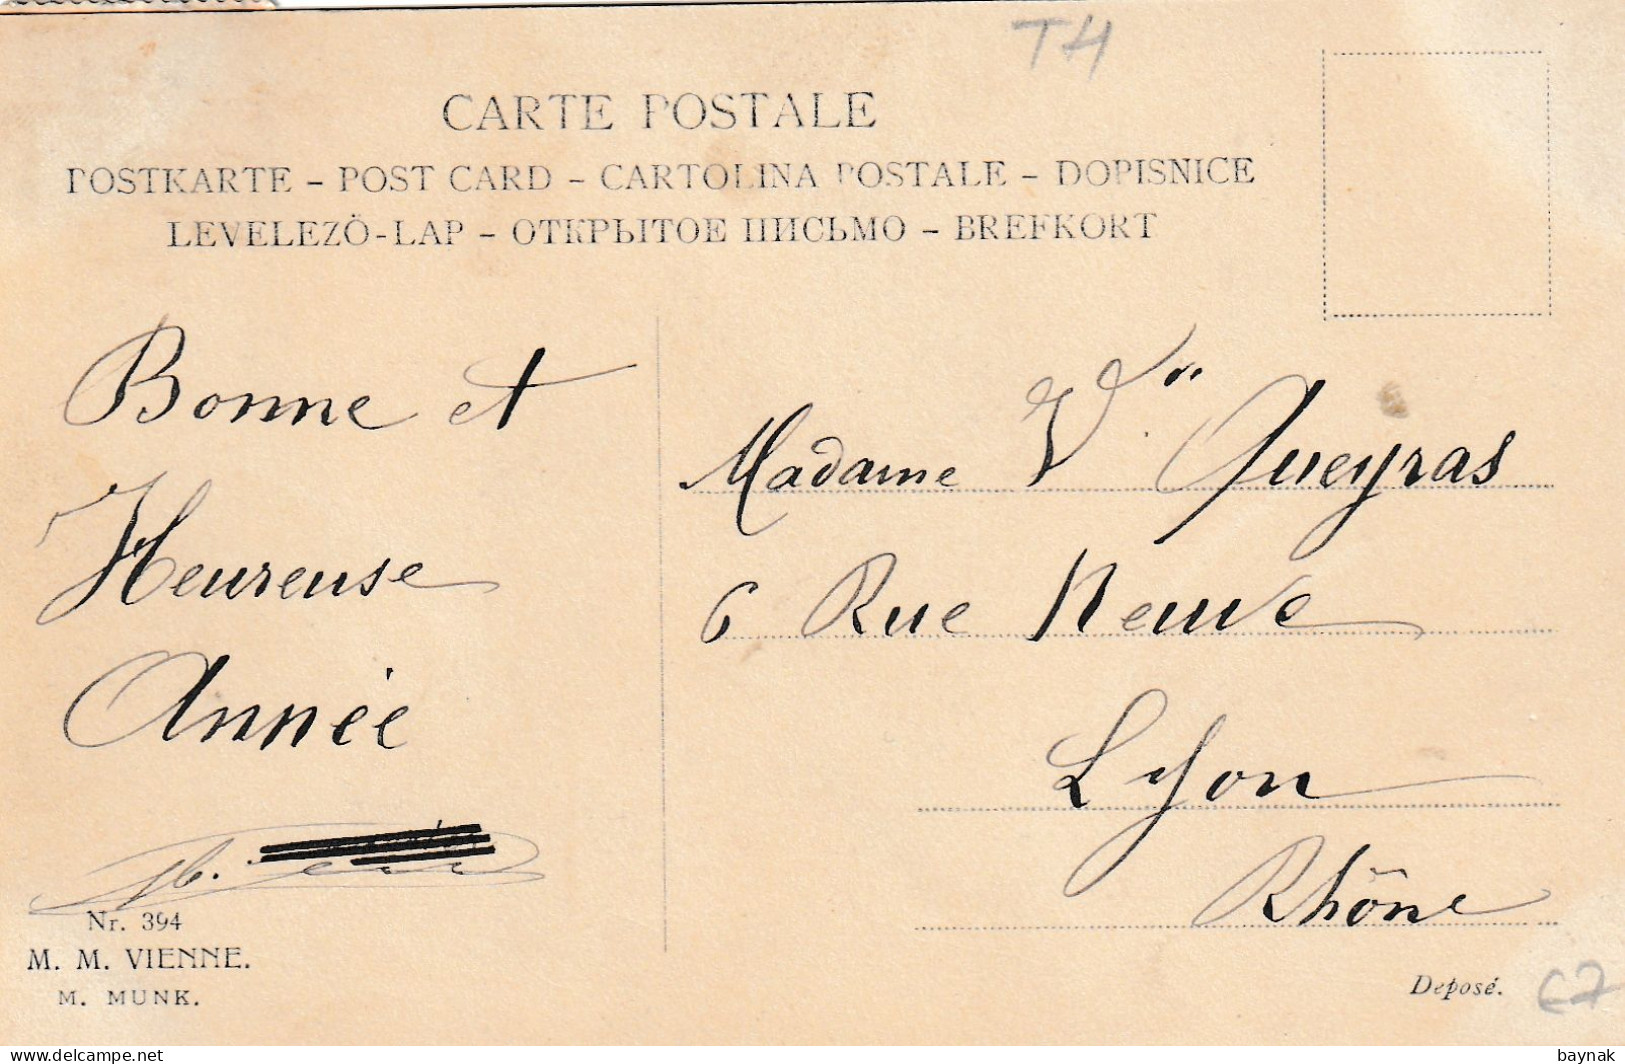 TH
CARTE POSTALE
POSTKARTE – POST CARD – CARTOLINA POSTALE – DOPISNICE
LEVELEZÖ-LAP – ОТКРЫТОЕ ПИСЬМО – BREFKORT
Bonne et
Heureuse
Année
Nr. 394
M. M. VIENNE.
M. MUNK.
Madame Vve Queyras
6 Rue Neuve
Lyon
Rhône
Deposé.
baynak